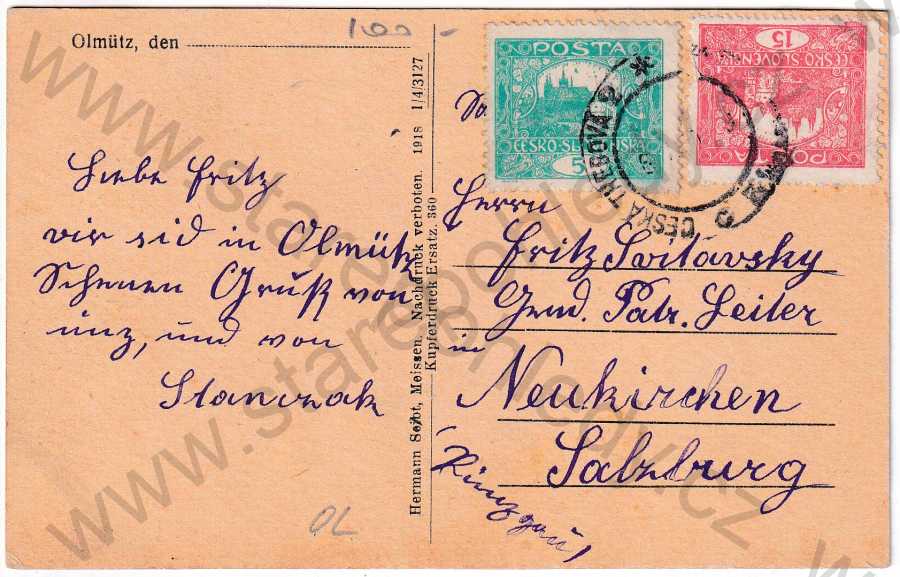 100 -
Olmütz, den
Liebe Fritz
wir sid in Olmütz
Schenen Gruß von
unz, und von
Stanczak
OL
Hermann Seibt, Meissen. Nachdruck verboten. 1918 1/4/3127
Kupferdruck Ersatz. 360
POSTA
ČESKO-SLOVENSKÁ
5
15
ČESKO-SLOVENSKÁ
POSTA
ČESKÁ TŘEBOVÁ 2
Herrn
Fritz Svitavsky
Gend. Patr. Leiter
in
Neukirchen
Salzburg
(Pinzgau)
www.starepohledy.cz